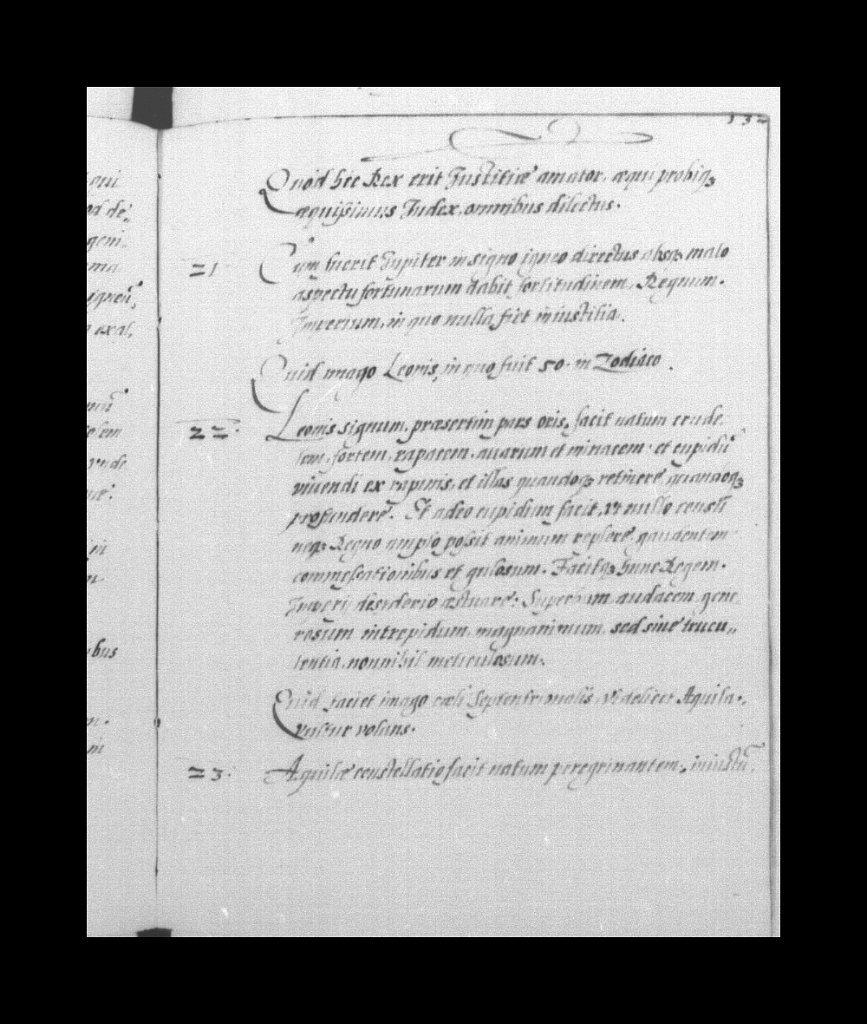 132
Quod hec Rex erit Justitiæ amator, æqui probiq3
æquissimus Judex, omnibus dilectus.
21 Cum fuerit Jupiter in signo igneo directus absq3 malo
aspectu fortunarum dabit fortitudinem, Regnum.
Imperium, in quo nulla fiet iniustitia.
Quid imago Leonis, in quo fuit 50. in Zodiaco.
22. Leonis signum, præsertim pars oris, facit natum crude
lem, fortem, rapacem, auarum et minacem et cupidū
viuendi ex rapinis, et illas quandoq3 retinere quandoq3
profundere. Et adeo cupidum facit, vt nullo censu
neq3 Regno amplo possit animum replere, gaudentem
commessationibus et gulosum. Facitq3 hunc Regem.
Imperij desiderio æstuare: Superbum audacem gene
rosum intrepidum, magnanimum, sed sine trucu,,
lentia, nonnihil meticulosum.
Quid faciet imago cæli Septentrionalis, videlicet Aquila.
vultur volans.
23. Aquilæ constellatio facit natum peregrinantem, iniustū